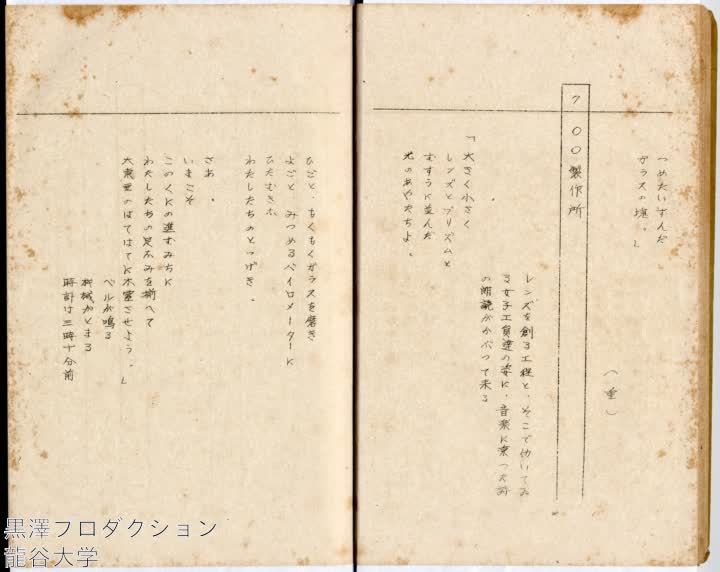 つめたいすんだ
ガラスの塊。」
（重）
7 〇〇製作所
レンズを創る工程と、そこで働いてゐ
る女子工員達の姿に、音楽に乗つた前
の朗読がかぶつて来る
「大きく小さく
レンズとプリズムと
むすうに並んだ
光のあやたちよ。
ひごと、もくもくガラスを磨き
よごと みつめるパイロメーターに
ひたむきな
わたしたちのとつげき。
さあ、
いまこそ
このくにの進むみちに
わたしたちの足なみを揃へて
大東亜のはてはてに木霊させよう。」
ベルが鳴る
機械がとまる
時計は三時十分前
黒澤プロダクション
龍谷大学